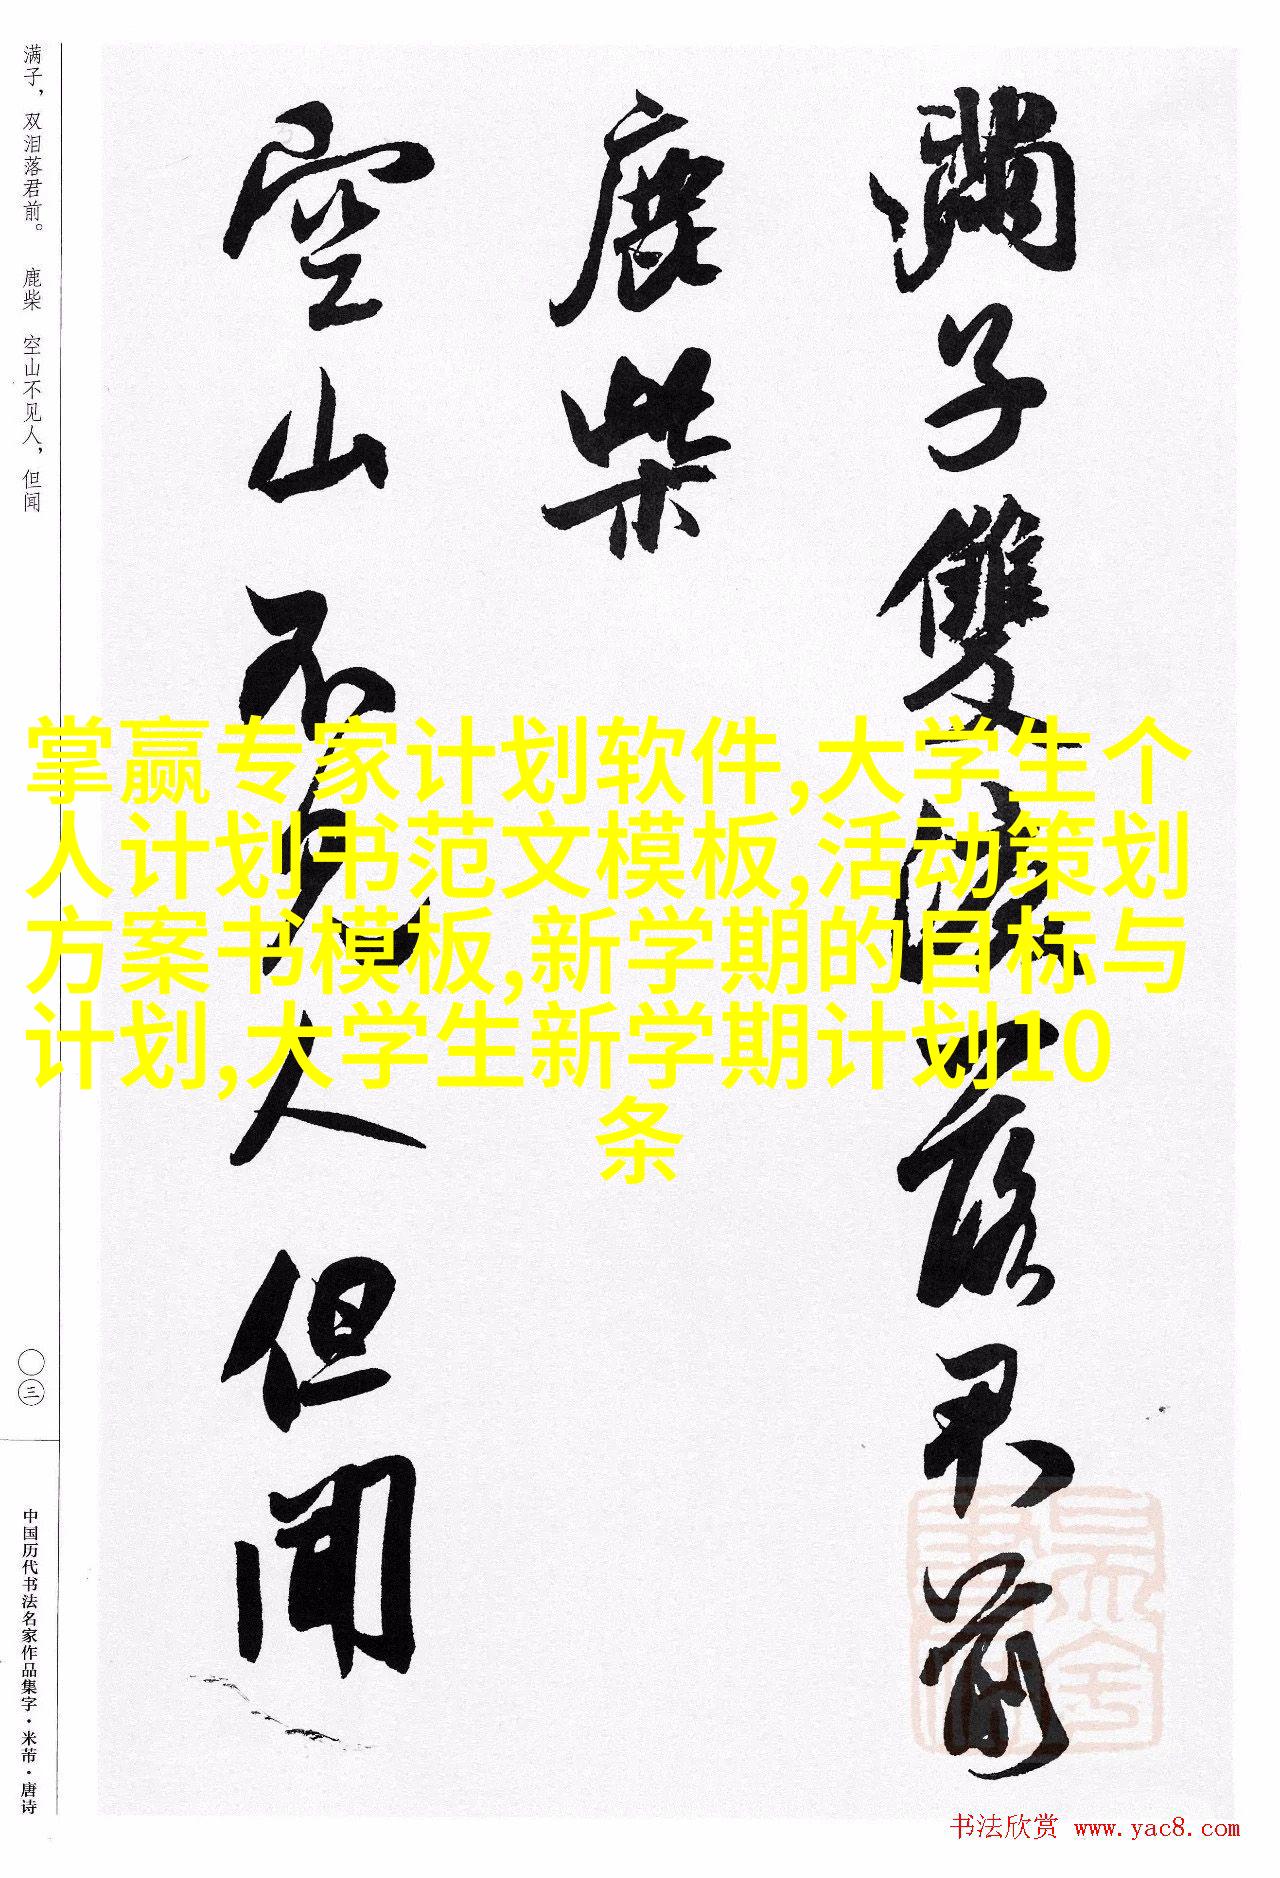 满子，双泪落君前。 鹿柴 空山不见人，但闻
满子雙淚落君前
鹿柴
空山不見人但聞
掌赢专家计划软件,大学生个
人计划书范文模板,活动策划
方案书模板,新学期的目标与
计划,大学生新学期计划10
条
〇三
中国历代书法名家作品集字·米芾·唐诗
书法欣赏 www.yac8.com